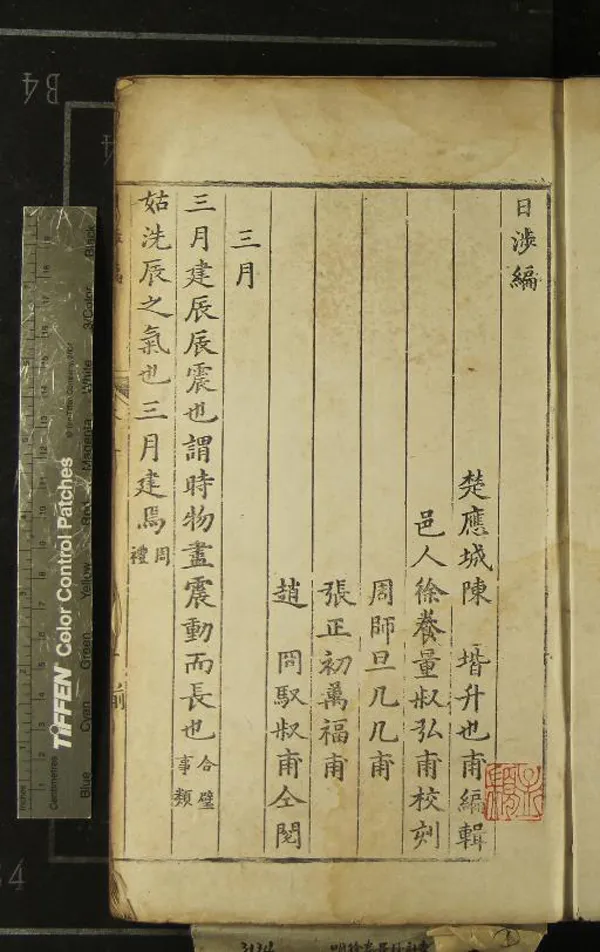 日涉編
楚應城陳 堦升也甫編輯
邑人徐養量叔弘甫校刻
周師旦几几甫
張正初萬福甫
趙 岡馭叔甫仝閱
三月
三月建辰辰震也謂時物盡震動而長也合璧事類
姑洗辰之氣也三月建焉周禮
TIFFEN Color Control Patches
Blue
Cyan
Green
Yellow
Red
Magenta
White
3/Color
Black
Inches
Centimetres
B4